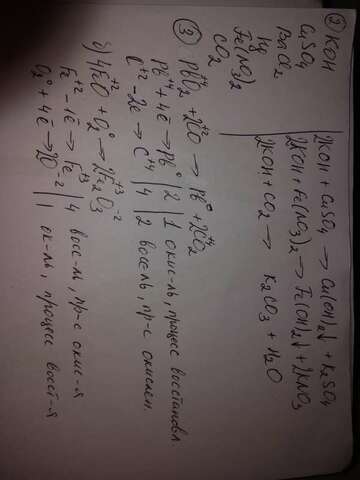 ② KOH
CuSO₄
BaCl₂
Hg
Fe(NO₃)₂
CO₂
2KOH + CuSO₄ → Cu(OH)₂↓ + K₂SO₄
2KOH + Fe(NO₃)₂ → Fe(OH)₂↓ + 2KNO₃
2KOH + CO₂ → K₂CO₃ + H₂O
③ Pb⁺⁴O₂ + 2C⁺²O → Pb⁰ + 2C⁺⁴O₂
Pb⁺⁴ + 4ē → Pb⁰ | 2 | 1 окис-ль, процесс восстановл.
C⁺² - 2ē → C⁺⁴ | 4 | 2 восс-ль, пр-с окислен.
б) 4Fe⁺²O + O₂⁰ → 2Fe₂⁺³O₃⁻²
Fe⁺² - 1ē → Fe⁺³ | 4 восс-ль, пр-с окис-я
O₂⁰ + 4ē → 2O⁻² | 1 ок-ль, процесс восст-я